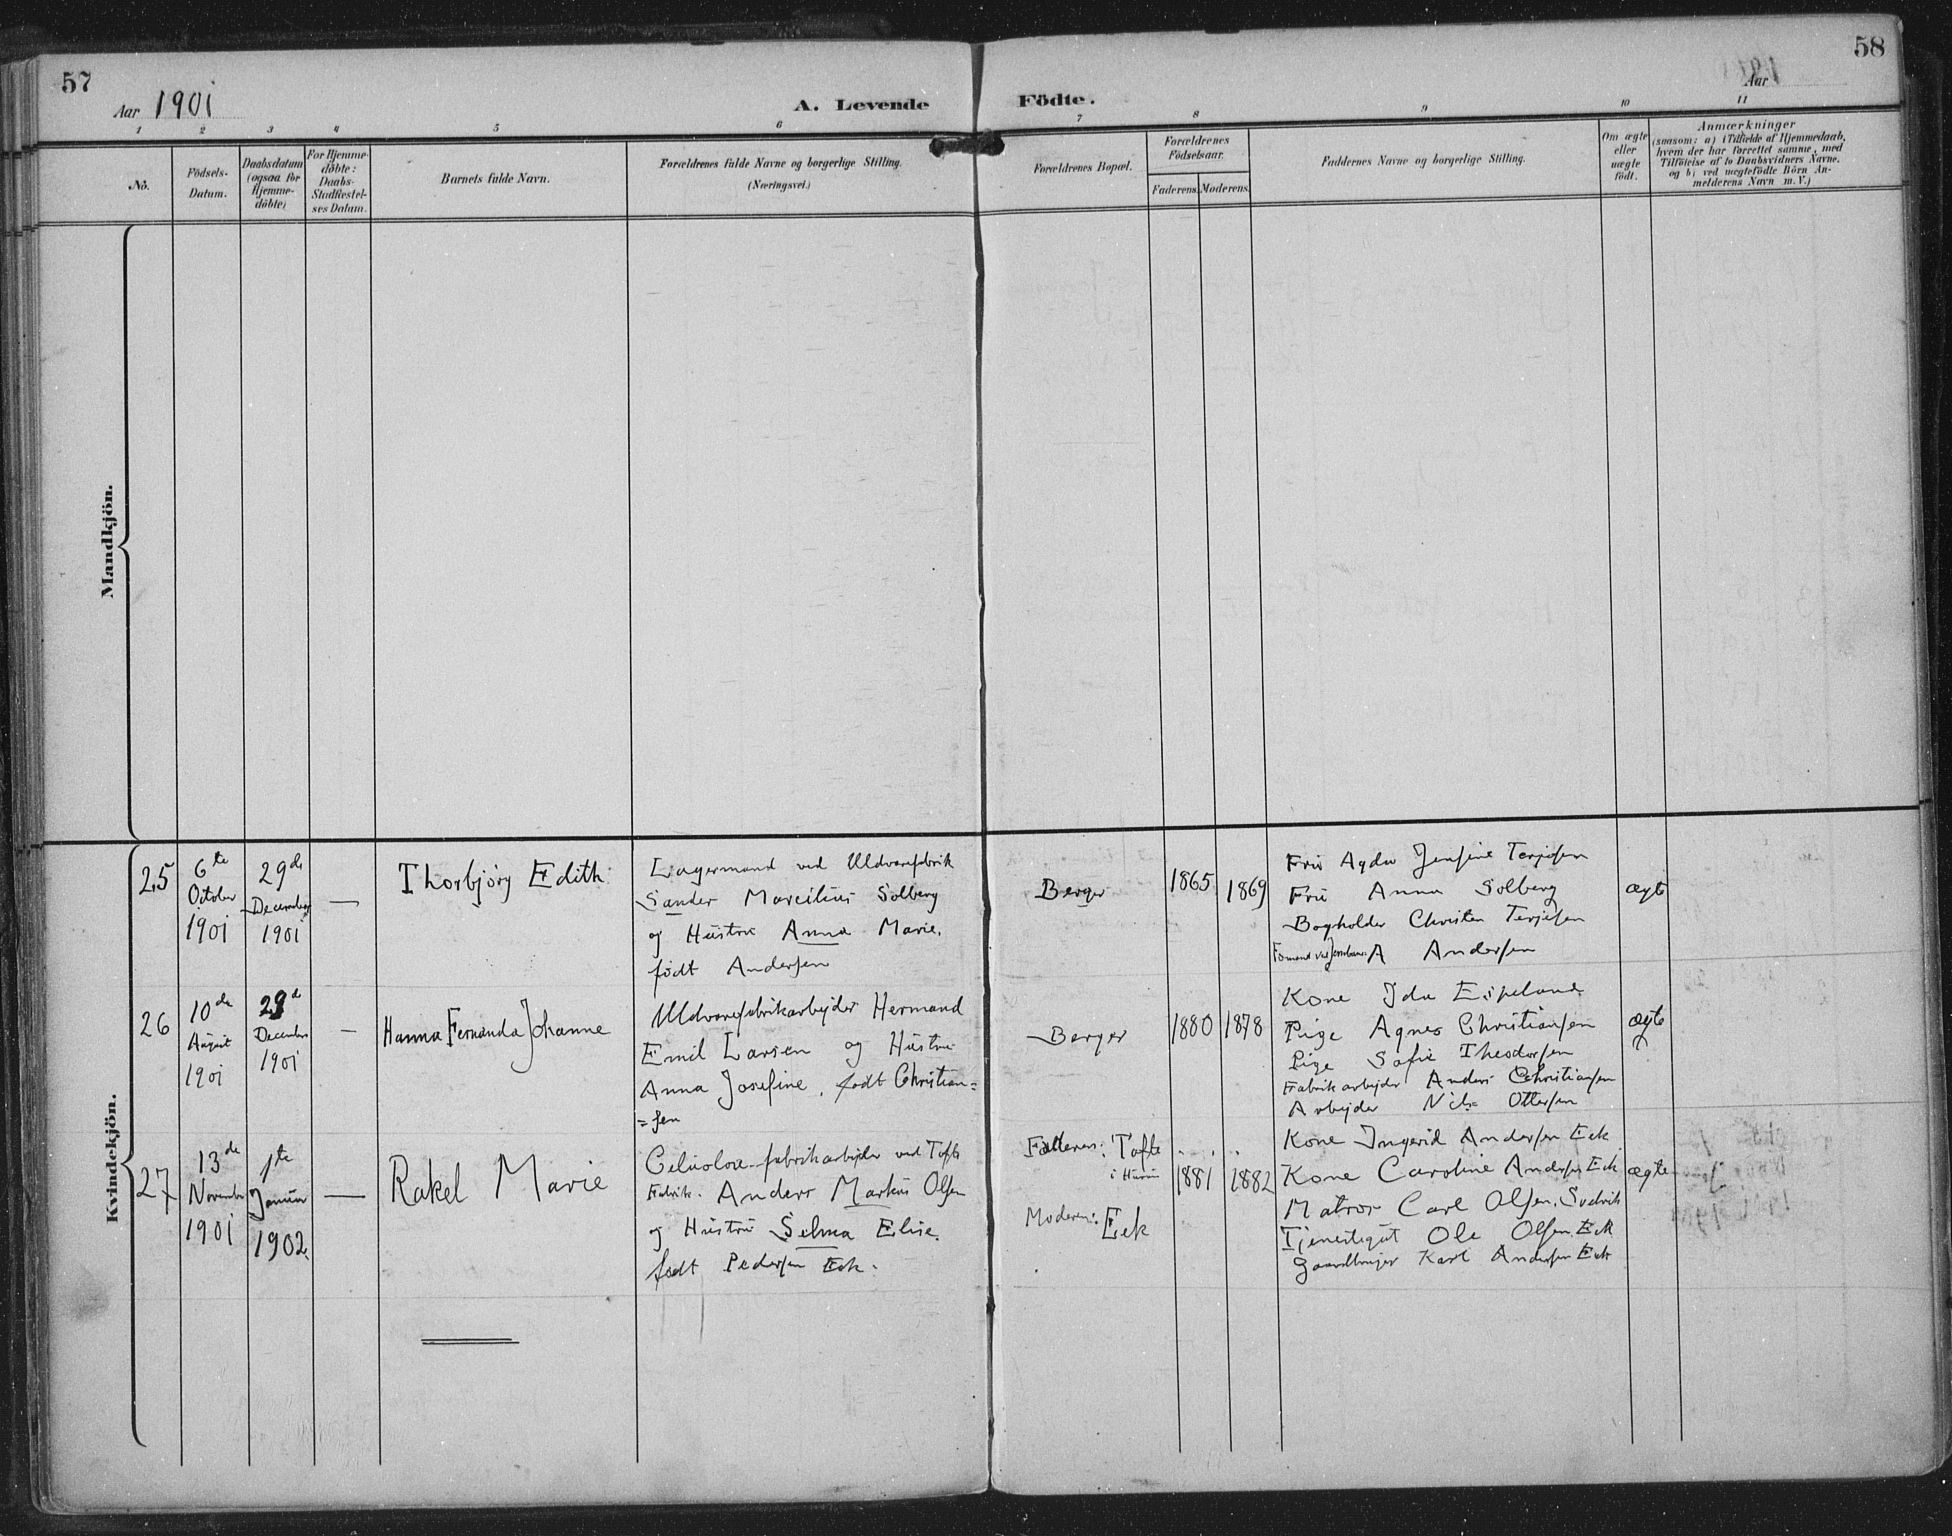 57
Aar 1901
A. Levende Födte.
58
Aar
1 2 3 4 5 6 7 8 9 10 11
No.
Födsels-
Datum.
Daabsdatum
(ogsaa for
Hjemme-
döbte)
For Hjemme-
döbte:
Daabs-
Stadfæstel-
ses Datum.
Barnets fulde Navn.
Forældrenes fulde Navne og borgerlige Stilling.
(Næringsvei.)
Forældrenes Bopæl.
Forældrenes
Födselsaar.
Faderens. Moderens.
Faddernes Navne og borgerlige Stilling.
Om ægte
eller
uægte
födt.
Anmærkninger
(saasom: a) i Tilfælde af Hjemmedaab,
hvem der har forrettet samme, med
Tilföielse af to Daabsvidners Navne.
og b) ved uægtefödte Börn An-
melderens Navn m. V.)
Mandkjön.
Kvindekjön.
25
6te
October
1901
29de
December
1901
—
Thorbjörg Edith
Lagermand ved Uldvarefabrik
Sander Marcilius Solberg
og Hustru Anna Marie,
født Andersen
Berger
1865
1869
Fru Agda Jensine Terjesen
Fru Anna Solberg
Bogholder Christen Terjesen
A Andersen
ægte
26
10de
August
1901
29d
December
1901
—
Hanna Fernanda Johanne
Uldvarefabrikarbejder Hermand
Emil Larsen og Hustru
Anna Josefine, født Christian=
=sen
Berger
1880
1878
Kone Ida Espeland
Pige Agnes Christiansen
Pige Sofie Theodorsen
Fabrikarbejder Anders Christiansen
Arbejder Nils Ottersen
ægte
27
13de
November
1901
1te
Januar
1902.
—
Rakel Marie
Celuolose-fabrikarbejder ved Tofte
Fabrik. Anders Markus Olsen
og Hustru Selma Elise,
født Pedersen Eek.
Faderen: Tofte
i Hurum
Moderen: Eek
1881
1882
Kone Ingerid Andersen Eek
Kone Caroline Andersen Eek
Matros Carl Olsen, Svelvik
Tjenestegut Ole Olsen Eek
Gaardbruger Karl Andersen Eek
ægte